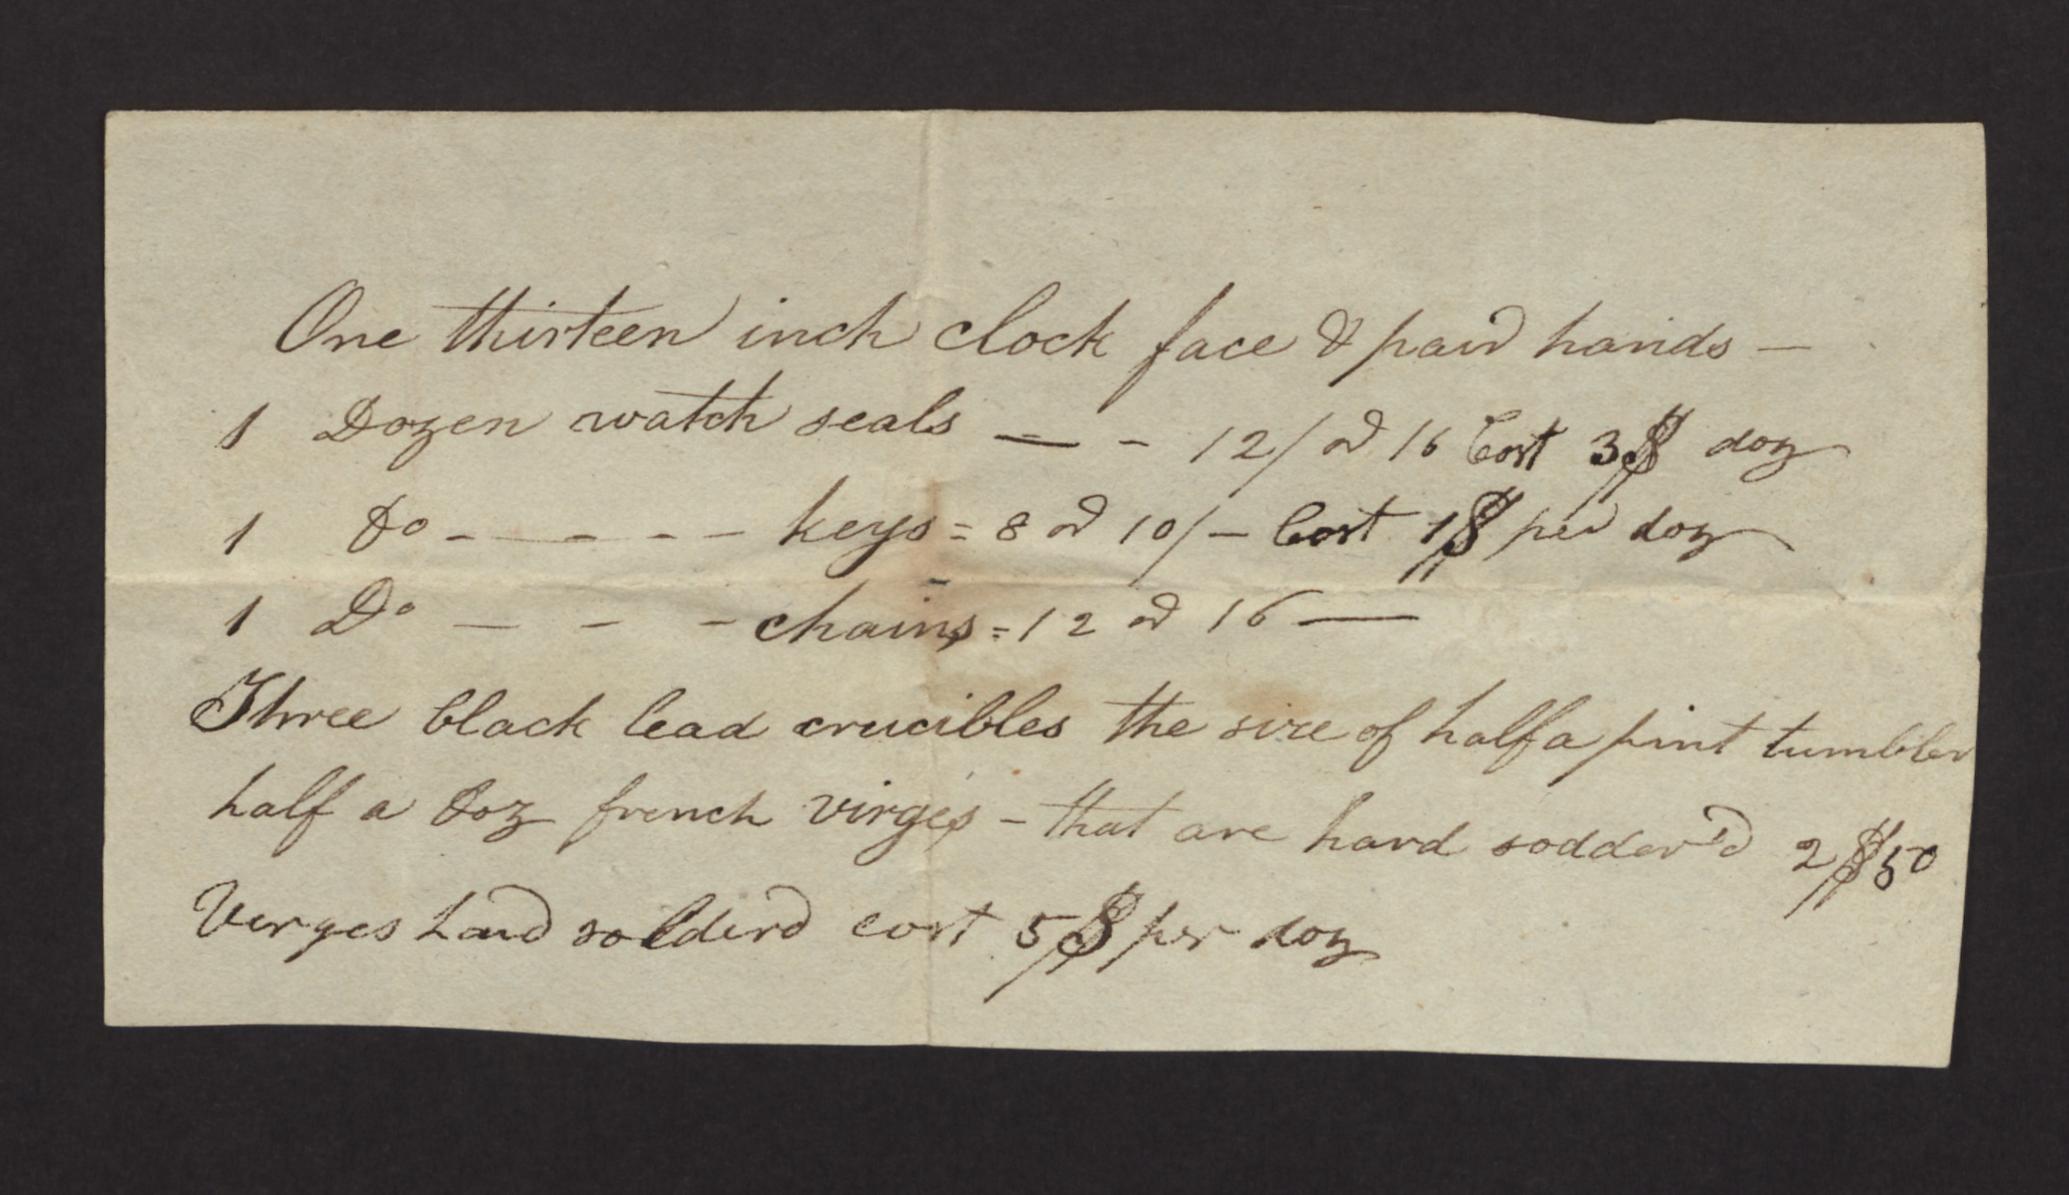 One thirteen inch clock face & pair hands —
1 Dozen watch seals — - 12/ or 16 Cost 3$ doz
1 Do - — - - — keys = 8 or 10/ — Cost 1$ per doz
1 Do — - - chains = 12 or 16 —
Three black lead crucibles the size of half a pint tumbler
half a doz french virges - that are hard sodder'd 2$50
Verges hard solderd cost 5$ per doz